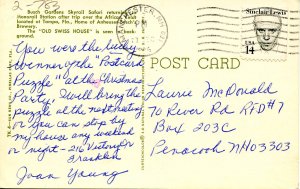 2 - 83
Busch Gardens Skyrail Safari returning to
Monorail Station after trip over the African Veldt
located at Tampa, Fla., Home of Anheuser-Busch
Brewery.
The "OLD SWISS HOUSE" is seen in back-
ground.
You were the lucky
winner of the "Postcard
Puzzle" at the Christmas
Party. I will bring the
puzzle at the next meeting
or you can stop by
my house any weekend
or night - 216 Victory Dr
Franklin
Joan Young
POST CARD
Sinclair Lewis
USA
14
Laurie McDonald
70 River Rd RFD #7
Box 203C
Penacook NH 03303